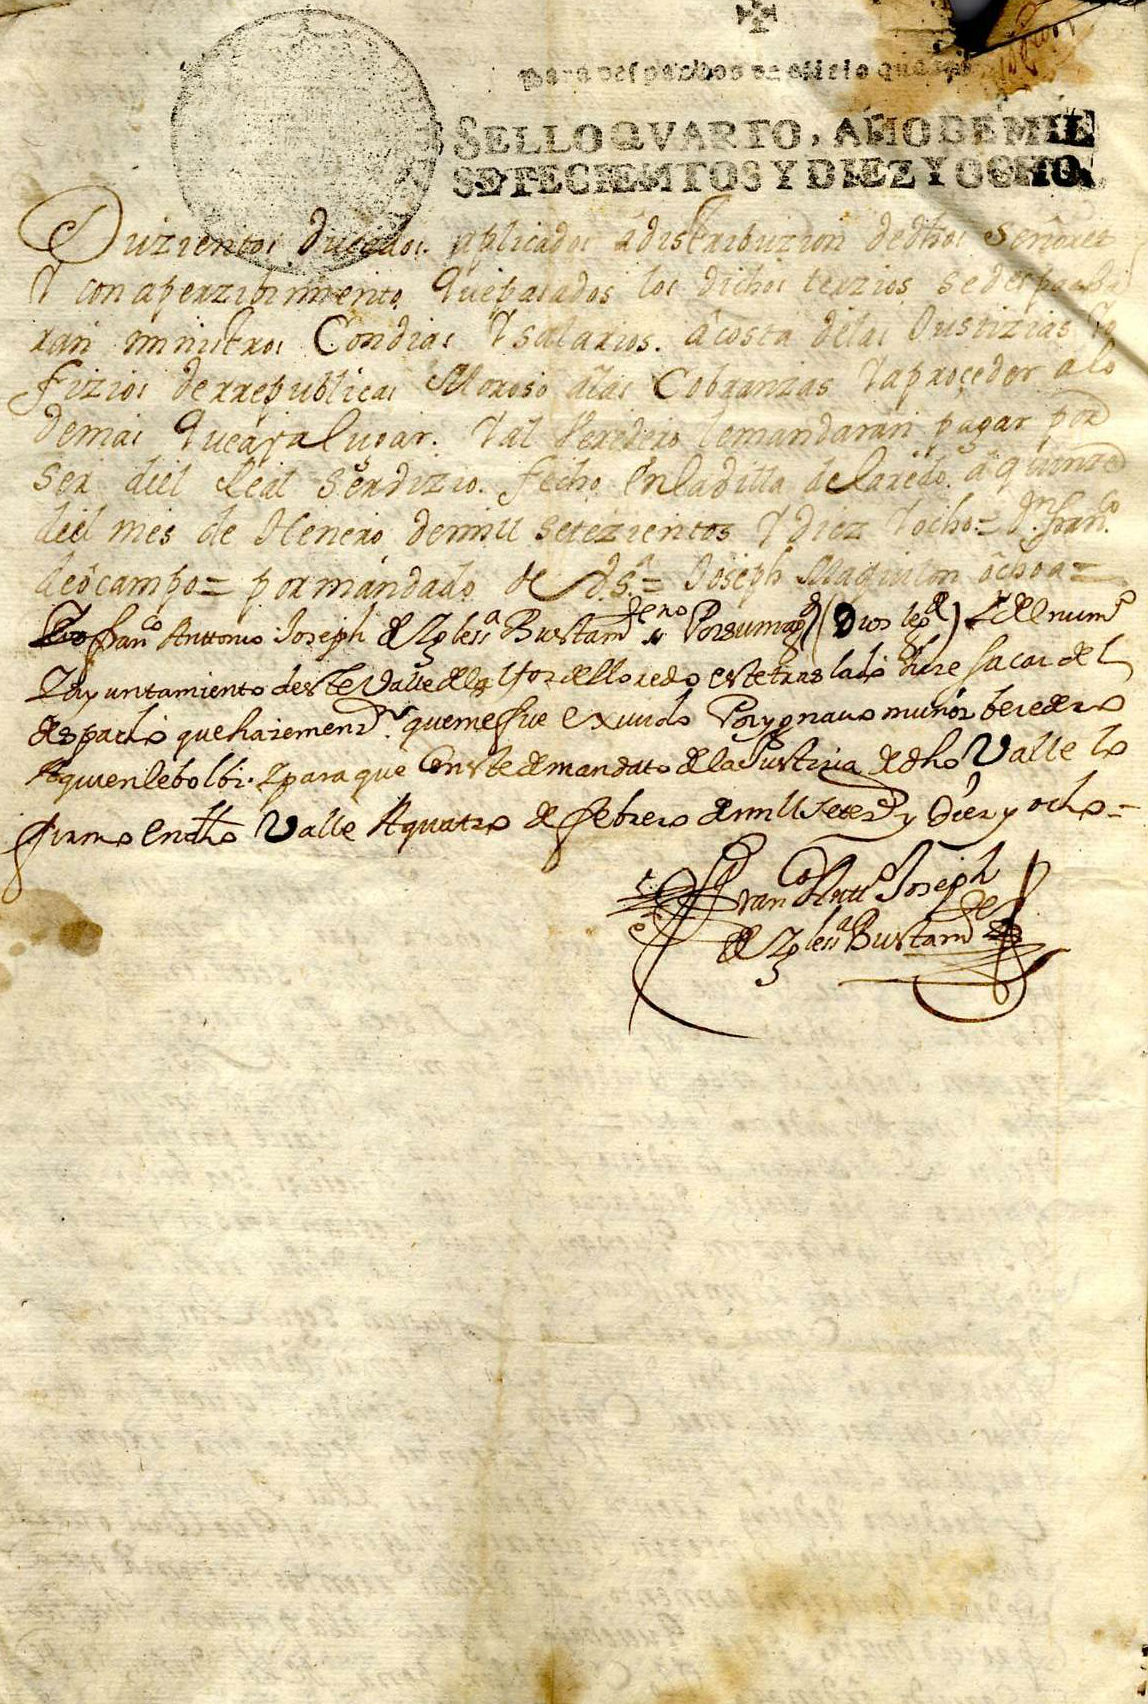 para despachos de oficio qua
SELLO QVARTO, AÑO DE MIL
SETECIENTOS Y DIEZ Y OCHO.
Duzientos ducados. aplicados â distribuzion de dhos
Y con aperzibimiento, que pasados los dichos terzios se despacha
ran ministros Con dias Y salarios. â costa de las Justizias Yo
fizios de rrepublicas Moroso a las Cobranzas Y a proçeder a lo
demas que aya lugar. Y al Veredero le mandaran pagar por
ser del Real Serbizio. fecho En la billa de laredo. â quinze
del mes de Henero de mill setezientos Y diez Y ocho = Dn. franco.
de ôcampo = por mandado de Su Sª = Joseph Maquilon ôchoa =
Yo franco Anttonio Joseph de Yglesª Bustamde sno Por su magd (Dios le gde) Y del numo
Y ayuntamiento deste Valle de Alfoz de lloredo este traslado hize sacar del
despacho que haze menzn. que me fue exuido Por ygnacio muñoz beredero
A quien le bolbi. Y para que Conste de mandato de la Justizia de dho Valle lo
firmo En dho Valle A quatro de febrero de mill setezs y diez y ocho =
Franco Antto Joseph
de Yglesª Bustamde